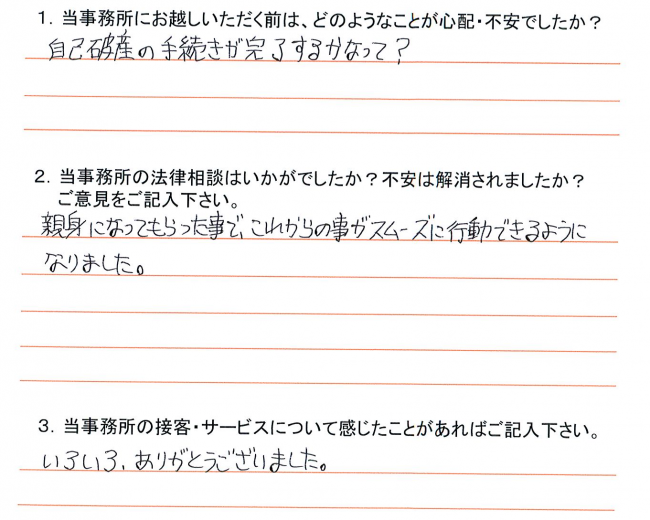 1．当事務所にお越しいただく前は、どのようなことが心配・不安でしたか？
自己破産の手続きが完了するかなって？
2．当事務所の法律相談はいかがでしたか？不安は解消されましたか？
ご意見をご記入下さい。
親身になってもらった事で、これからの事がスムーズに行動できるように
なりました。
3．当事務所の接客・サービスについて感じたことがあればご記入下さい。
いろいろ、ありがとうございました。